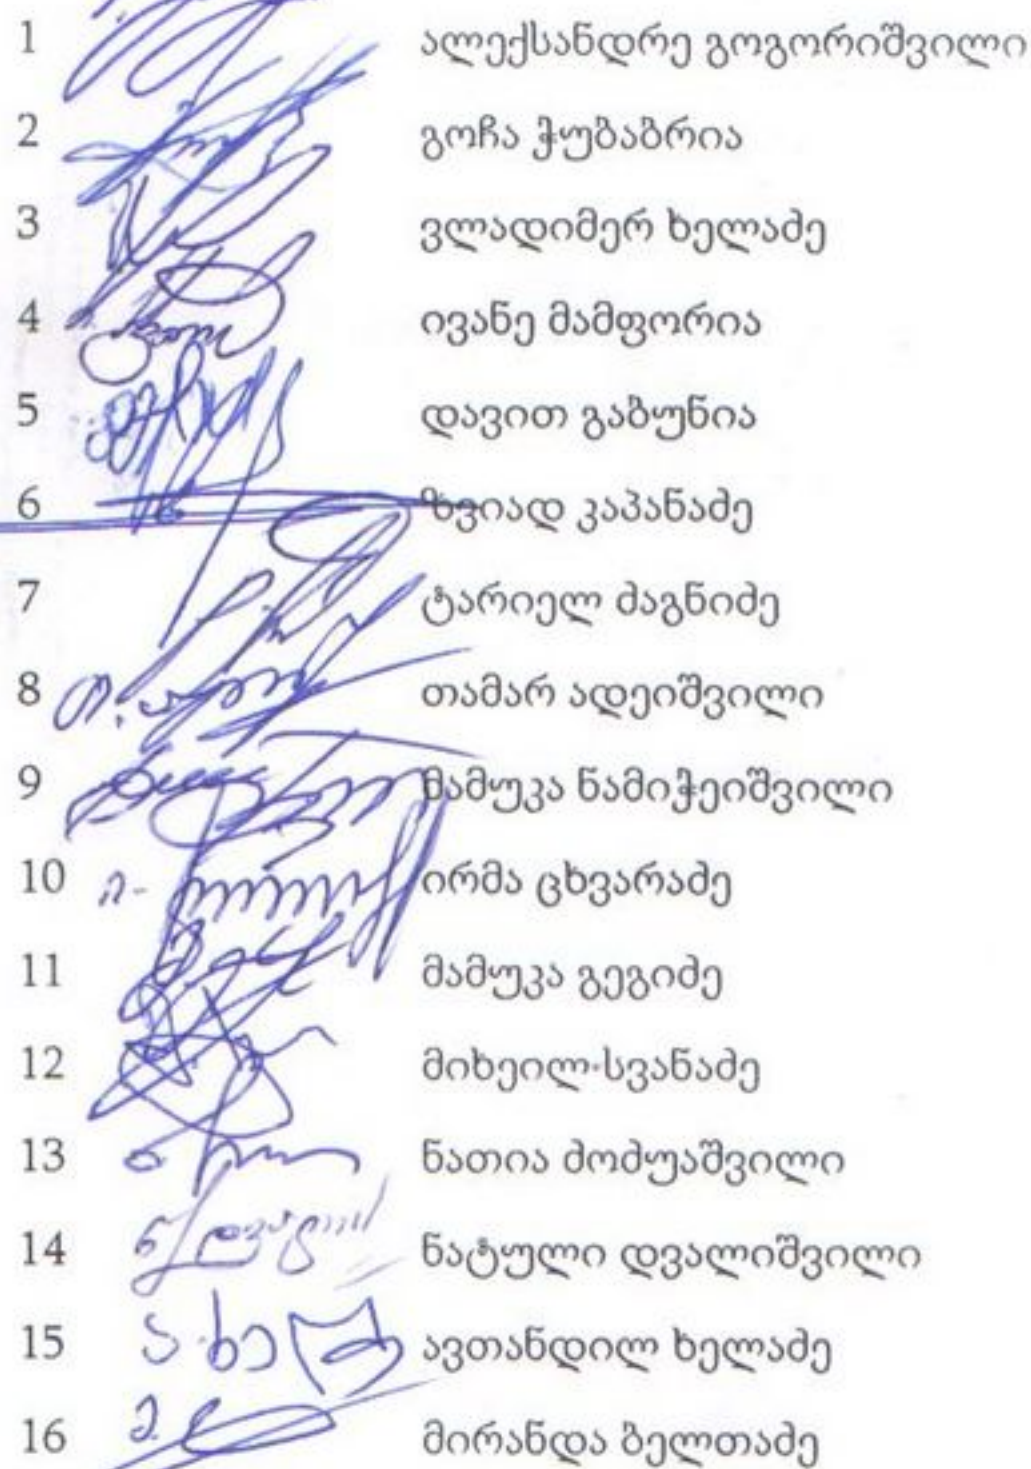 1 ალექსანდრე გოგორიშვილი
2 გოჩა ჭუბაბრია
3 ვლადიმერ ხელაძე
4 ივანე მამფორია
5 დავით გაბუნია
6 ზვიად კაპანაძე
7 ტარიელ ძაგნიძე
8 თამარ ადეიშვილი
9 მამუკა ნამიჭეიშვილი
10 ირმა ცხვარაძე
11 მამუკა გეგიძე
12 მიხეილ სვანაძე
13 ნათია ძოძუაშვილი
14 ნატული დვალიშვილი
15 ავთანდილ ხელაძე
16 მირანდა ბელთაძე